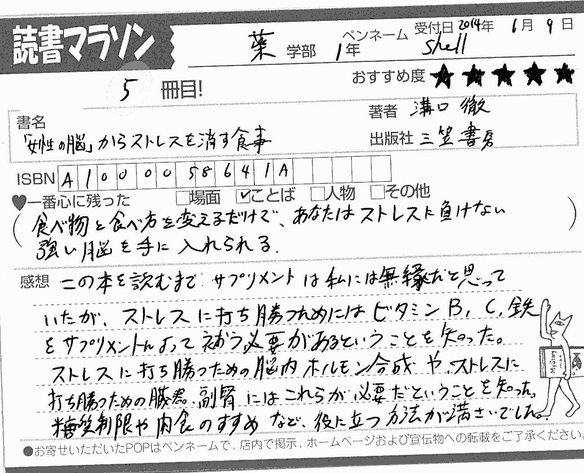 読書マラソン
薬 学部 1年 ペンネーム shell 受付日 2014年 6月 9日
5 冊目!
おすすめ度 ★★★★★
書名 「女性の脳」からストレスを消す食事
著者 溝口 徹
出版社 三笠書房
ISBN A1000058641A
♥一番心に残った □場面 ☑ことば □人物 □その他
(食べ物と食べ方を変えるだけで、あなたはストレスに負けない
強い脳を手に入れられる。)
感想 この本を読むまで、サプリメントは私には無縁だと思って
いたが、ストレスに打ち勝つためにはビタミンB,C,鉄
をサプリメントによって補う必要があるということを知った。
ストレスに打ち勝つための脳内ホルモン合成や、ストレスに
打ち勝つための臓器、副腎にはこれらが必要だということを知った。
糖質制限や肉食のすすめなど、役に立つ方法が満さいでした。
●お寄せいただいたPOPはペンネームで、店内で掲示、ホームページおよび宣伝物への転載をご了承ください。